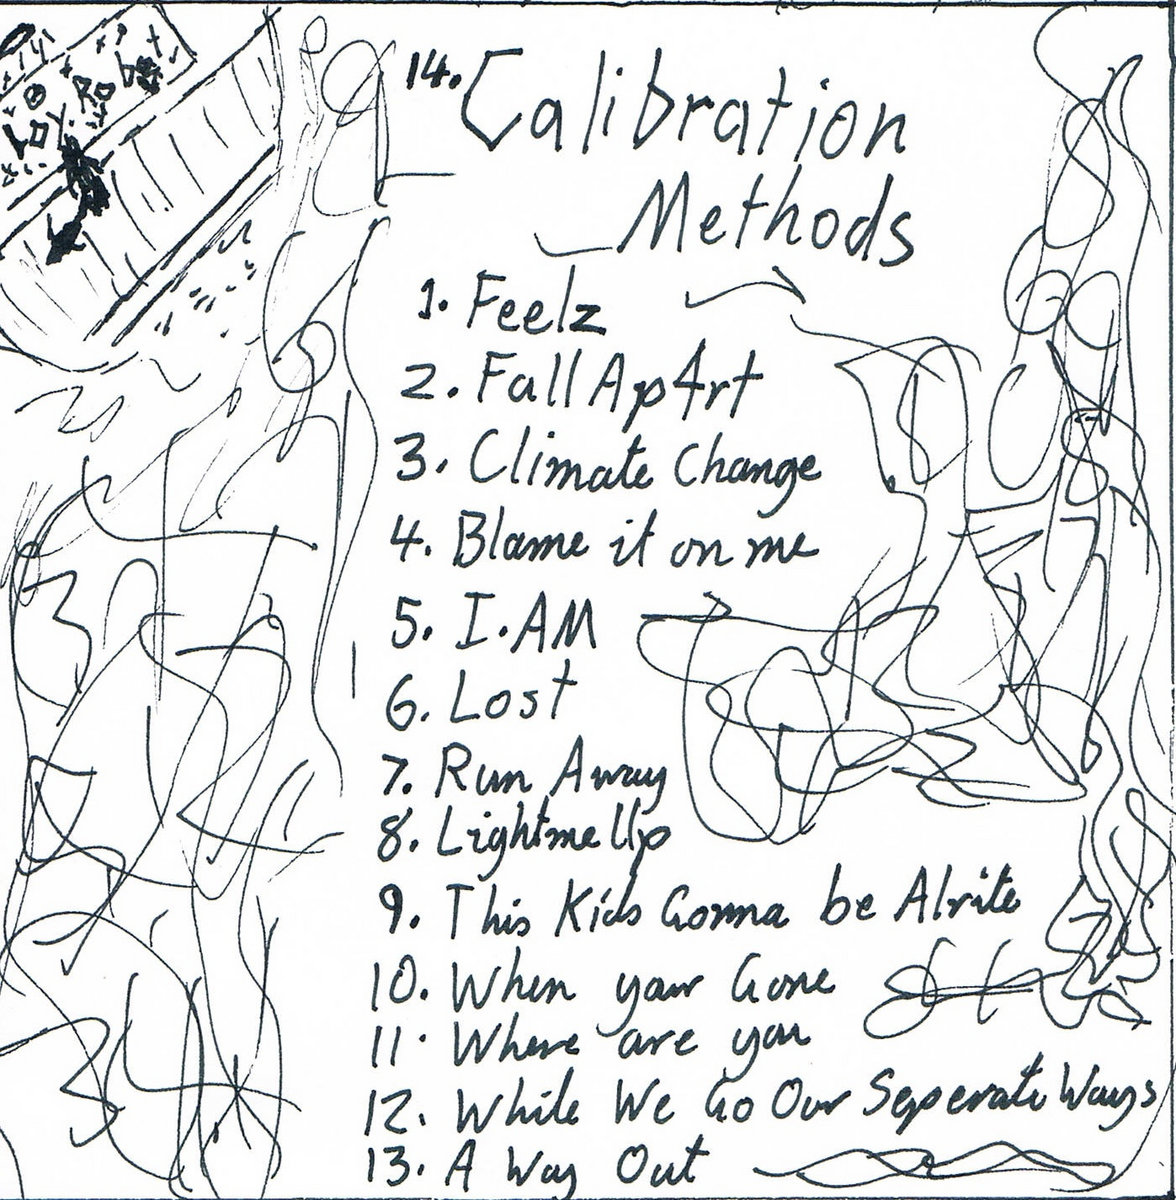 14. Calibration
Methods
1. Feelz
2. Fall Ap4rt
3. Climate Change
4. Blame it on me
5. I.AM
6. Lost
7. Run Away
8. Lightme Up
9. This Kids Gonna be Alrite
10. When your Gone
11. Where are you
12. While We Go Our Seperate Ways
13. A Way Out